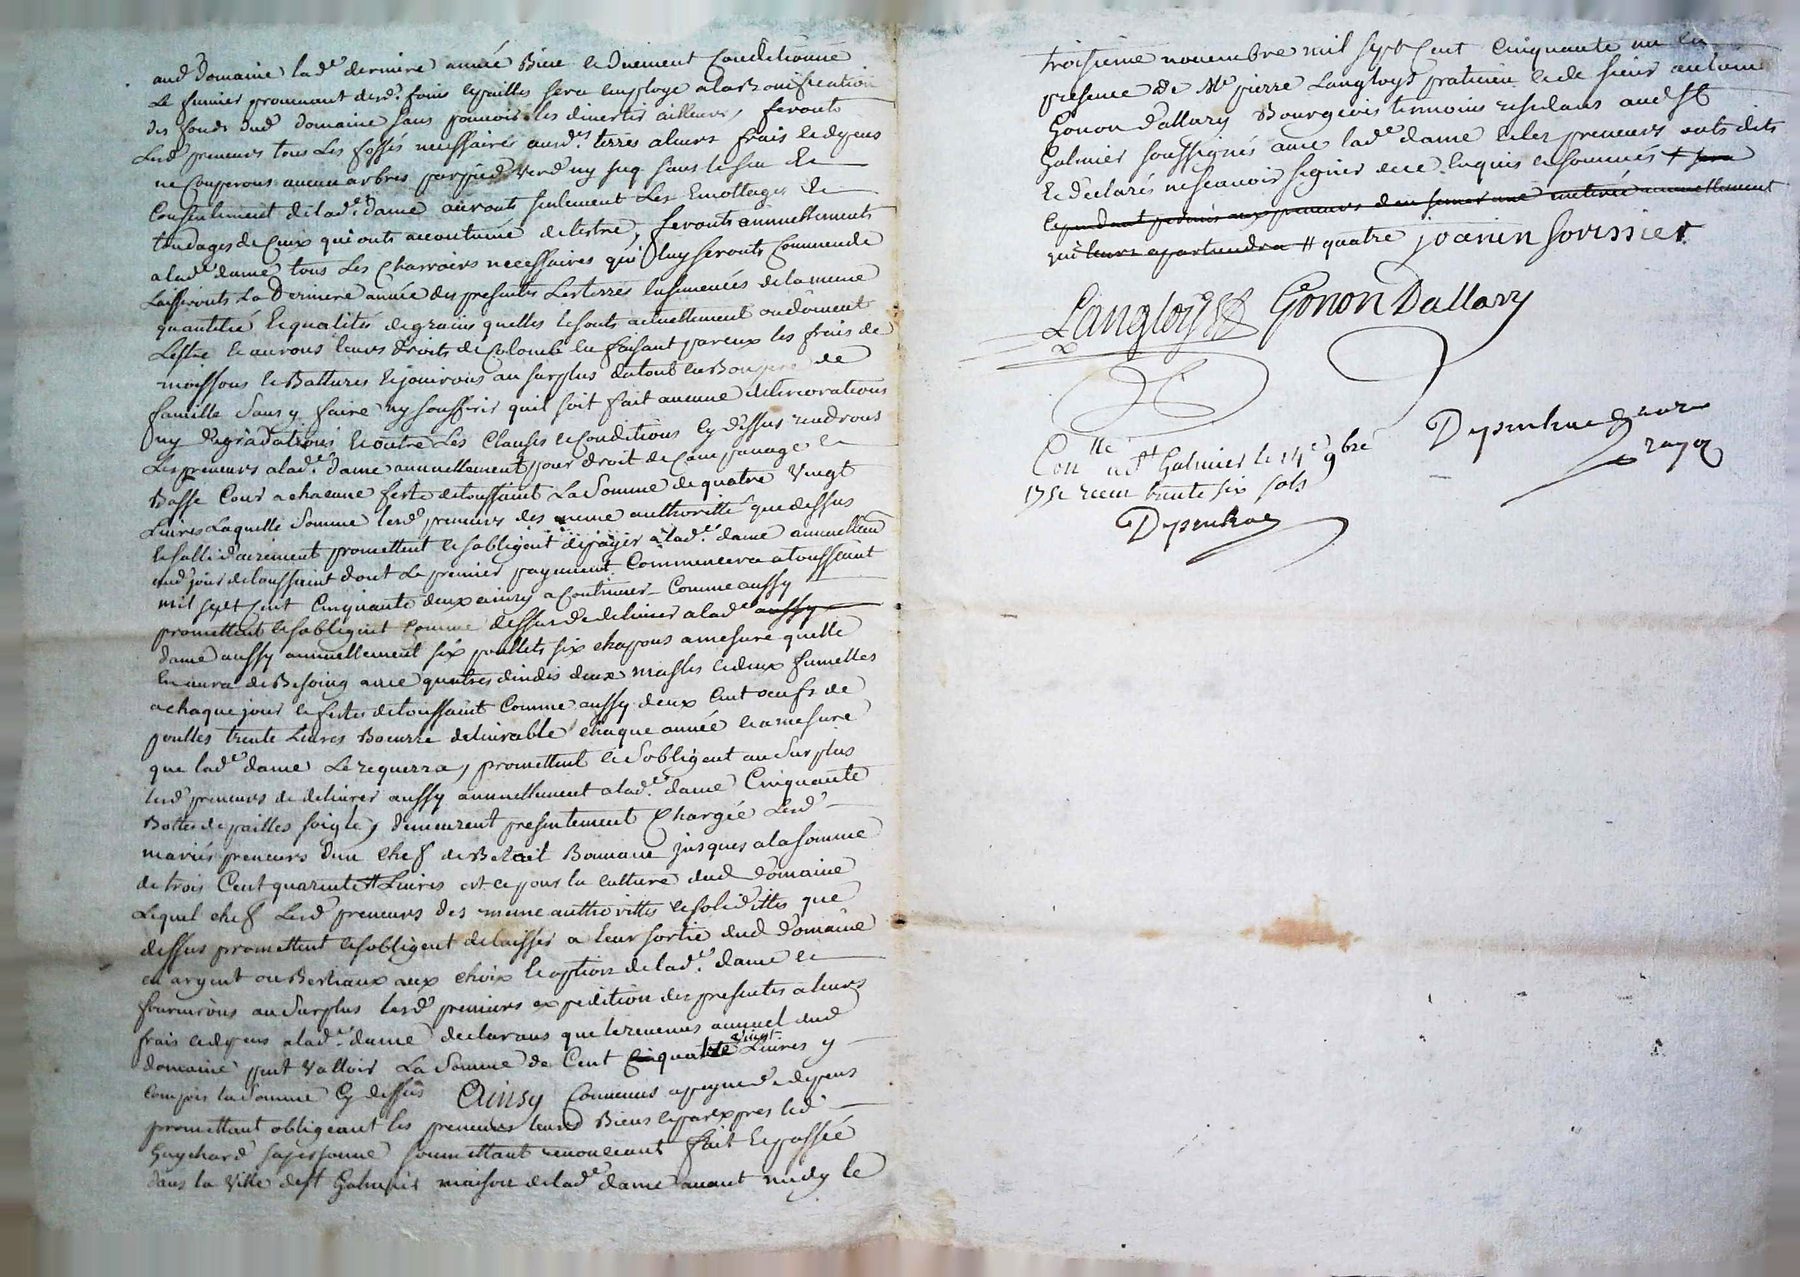 aud domaine lad.e derniere année Bien et Duement Conditionné
Le fumier provenant desd. foins et pailles sera employé a la Bonification
des fonds dud domaine sans pouvoir les divertir ailleurs, feronts
Lesd preneurs tous Les fossés necessaires ausd. terres a leurs frais et depens
ne Couperons aucun arbres par pied Verd ny seq sans le seu Et
Consentement de lad.e dame auronts seulement Les Emottages Et
tondages de Ceux qui onts accoutumé de lestre, feronts annuellements
a lad.e dame tous Les Charroirs necessaires qui luy seronts Commendé
Laisseronts La Derniere année des presentes Les terres Ensemencés de la meme
quantité Et qualités de grains quelles Le sonts actuellement ou doivent
Lestre Et aurons leurs droits de Colombe En faisant par eux les frais de
moissons Et Battures Et jouirons au surplus du tout En Bon pere de
famille Sans y faire ny souffrir quil soit fait aucune deteriorations
ny degradations Et outre Les Clauses Et Conditions Cy dessus rendrons
Les preneurs a lad.e dame annuellement pour droit de Campanage Et
Basse Cour a chacune feste de toussaint La Somme de quatre Vingt
Livres Laquelle Somme lesd preneurs des meme authorité que dessus
Et sollidairement promettent Et sobligent de payer a lad.e dame annuellem
aud jour de toussaint dont Le premier payement Commencera a toussaint
mil sept Cent Cinquante deux ainsy a Continuer Comme aussy
promettent Et sobligent comme dessus de delivrer a lad.e aussy
dame aussy annuellement six poullets six chapons a mesure quelle
En aura de Besoing avec quatres dindes deux masles et deux fumelles
a chaque jour Et festes de toussaint Comme aussy deux Cent oeufs de
poulles trente Livres Boeurre delivrable chaque année Et a mesure
que lad.e dame Le requerra, promettent Et Sobligent au Surplus
lesd preneurs de delivrer aussy annuellement a lad.e dame Cinquante
Bottes de pailles soigle, demeurent presentement Chargée Lesd
mariés preneurs dun Chef de Betail Bouvane jusques a la somme
de trois Cent quarente Livres et ce pour la culture dud domaine
Lequel chef Lesd preneurs des meme authorittes et solidittes que
dessus promettent Et sobligent de laisser a leur sortie dud domaine
en argent ou Bestiaux aux choix Et option de lad.e dame Et
fourniront au Surplus lesd preneurs expedition des presentes a leurs
frais et depens a lad.e dame declarans que le revenus annuel dud
domaine peut Valloir La Somme de Cent Cinquante vingt Livres y
Compris la Somme Cy dessus Ainsy Convenus a peyne de depens
promettant obligeant les preneurs leurs Biens Et par expres led
Guychard sa personne soumettant renonceant fait Et passée
dans la Ville de St Galmier maison de lad.e dame avant midy le
troisieme novembre mil sept Cent Cinquante un en
presence de Me pierre Langloys praticien et de sieur antoine
Gonon dallary Bourgeois temoins residans aud St
Galmier soussignés avec lad.e dame Et les preneurs onts dits
Et declarés ne sçavoir signer de ce Enquis et sommés sera
Cependant permis aux preneurs den semer une meterée annuellement
qui leurs apartiendra quatre joanin sorissier
Langloys Gonon Dallary
Conlle a St Galmier le 14e 9bre
1751 receu trente six sols